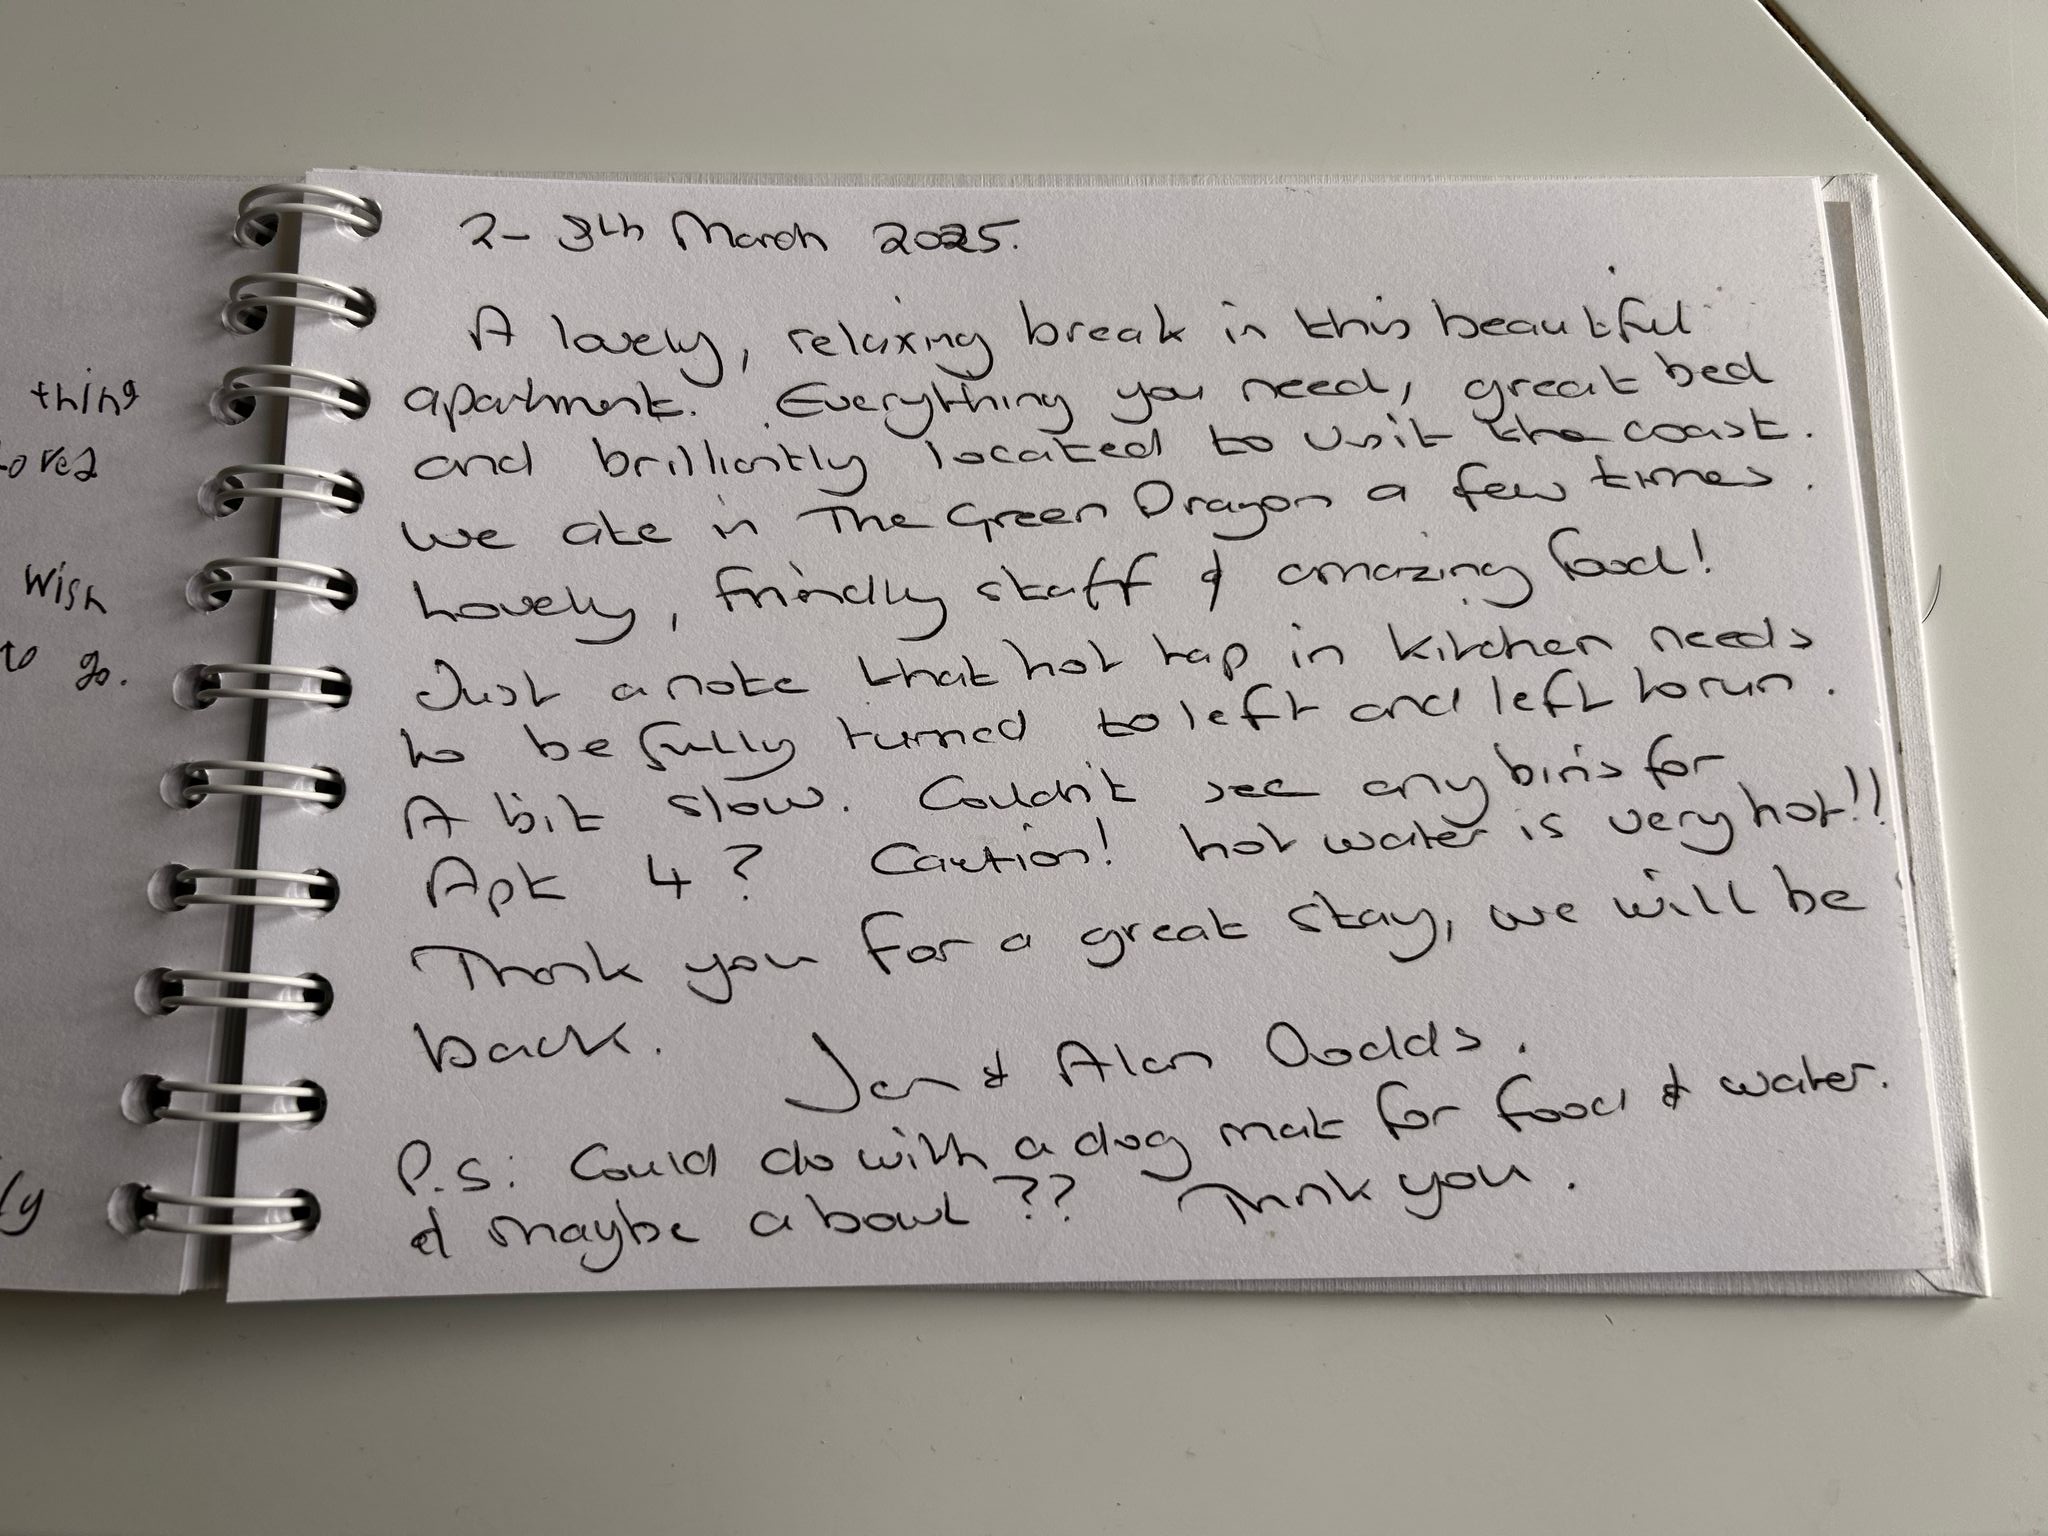 thing
wish
to go.
2- 8th March 2025.
A lovely, relaxing break in this beautiful
apartment. Everything you need, great bed
and brilliantly located to visit the coast.
we ate in The Green Dragon a few times.
Lovely, friendly staff & amazing food!
Just a note that hot tap in kitchen needs
to be fully turned to left and left to run.
A bit slow. Couldn't see any bins for
Apt 4? Caution! hot water is very hot!!
Thank you for a great stay, we will be
back. Jan & Alan Dodds.
P.S: Could do with a dog mat for food & water.
& maybe a bowl?? Thank you.